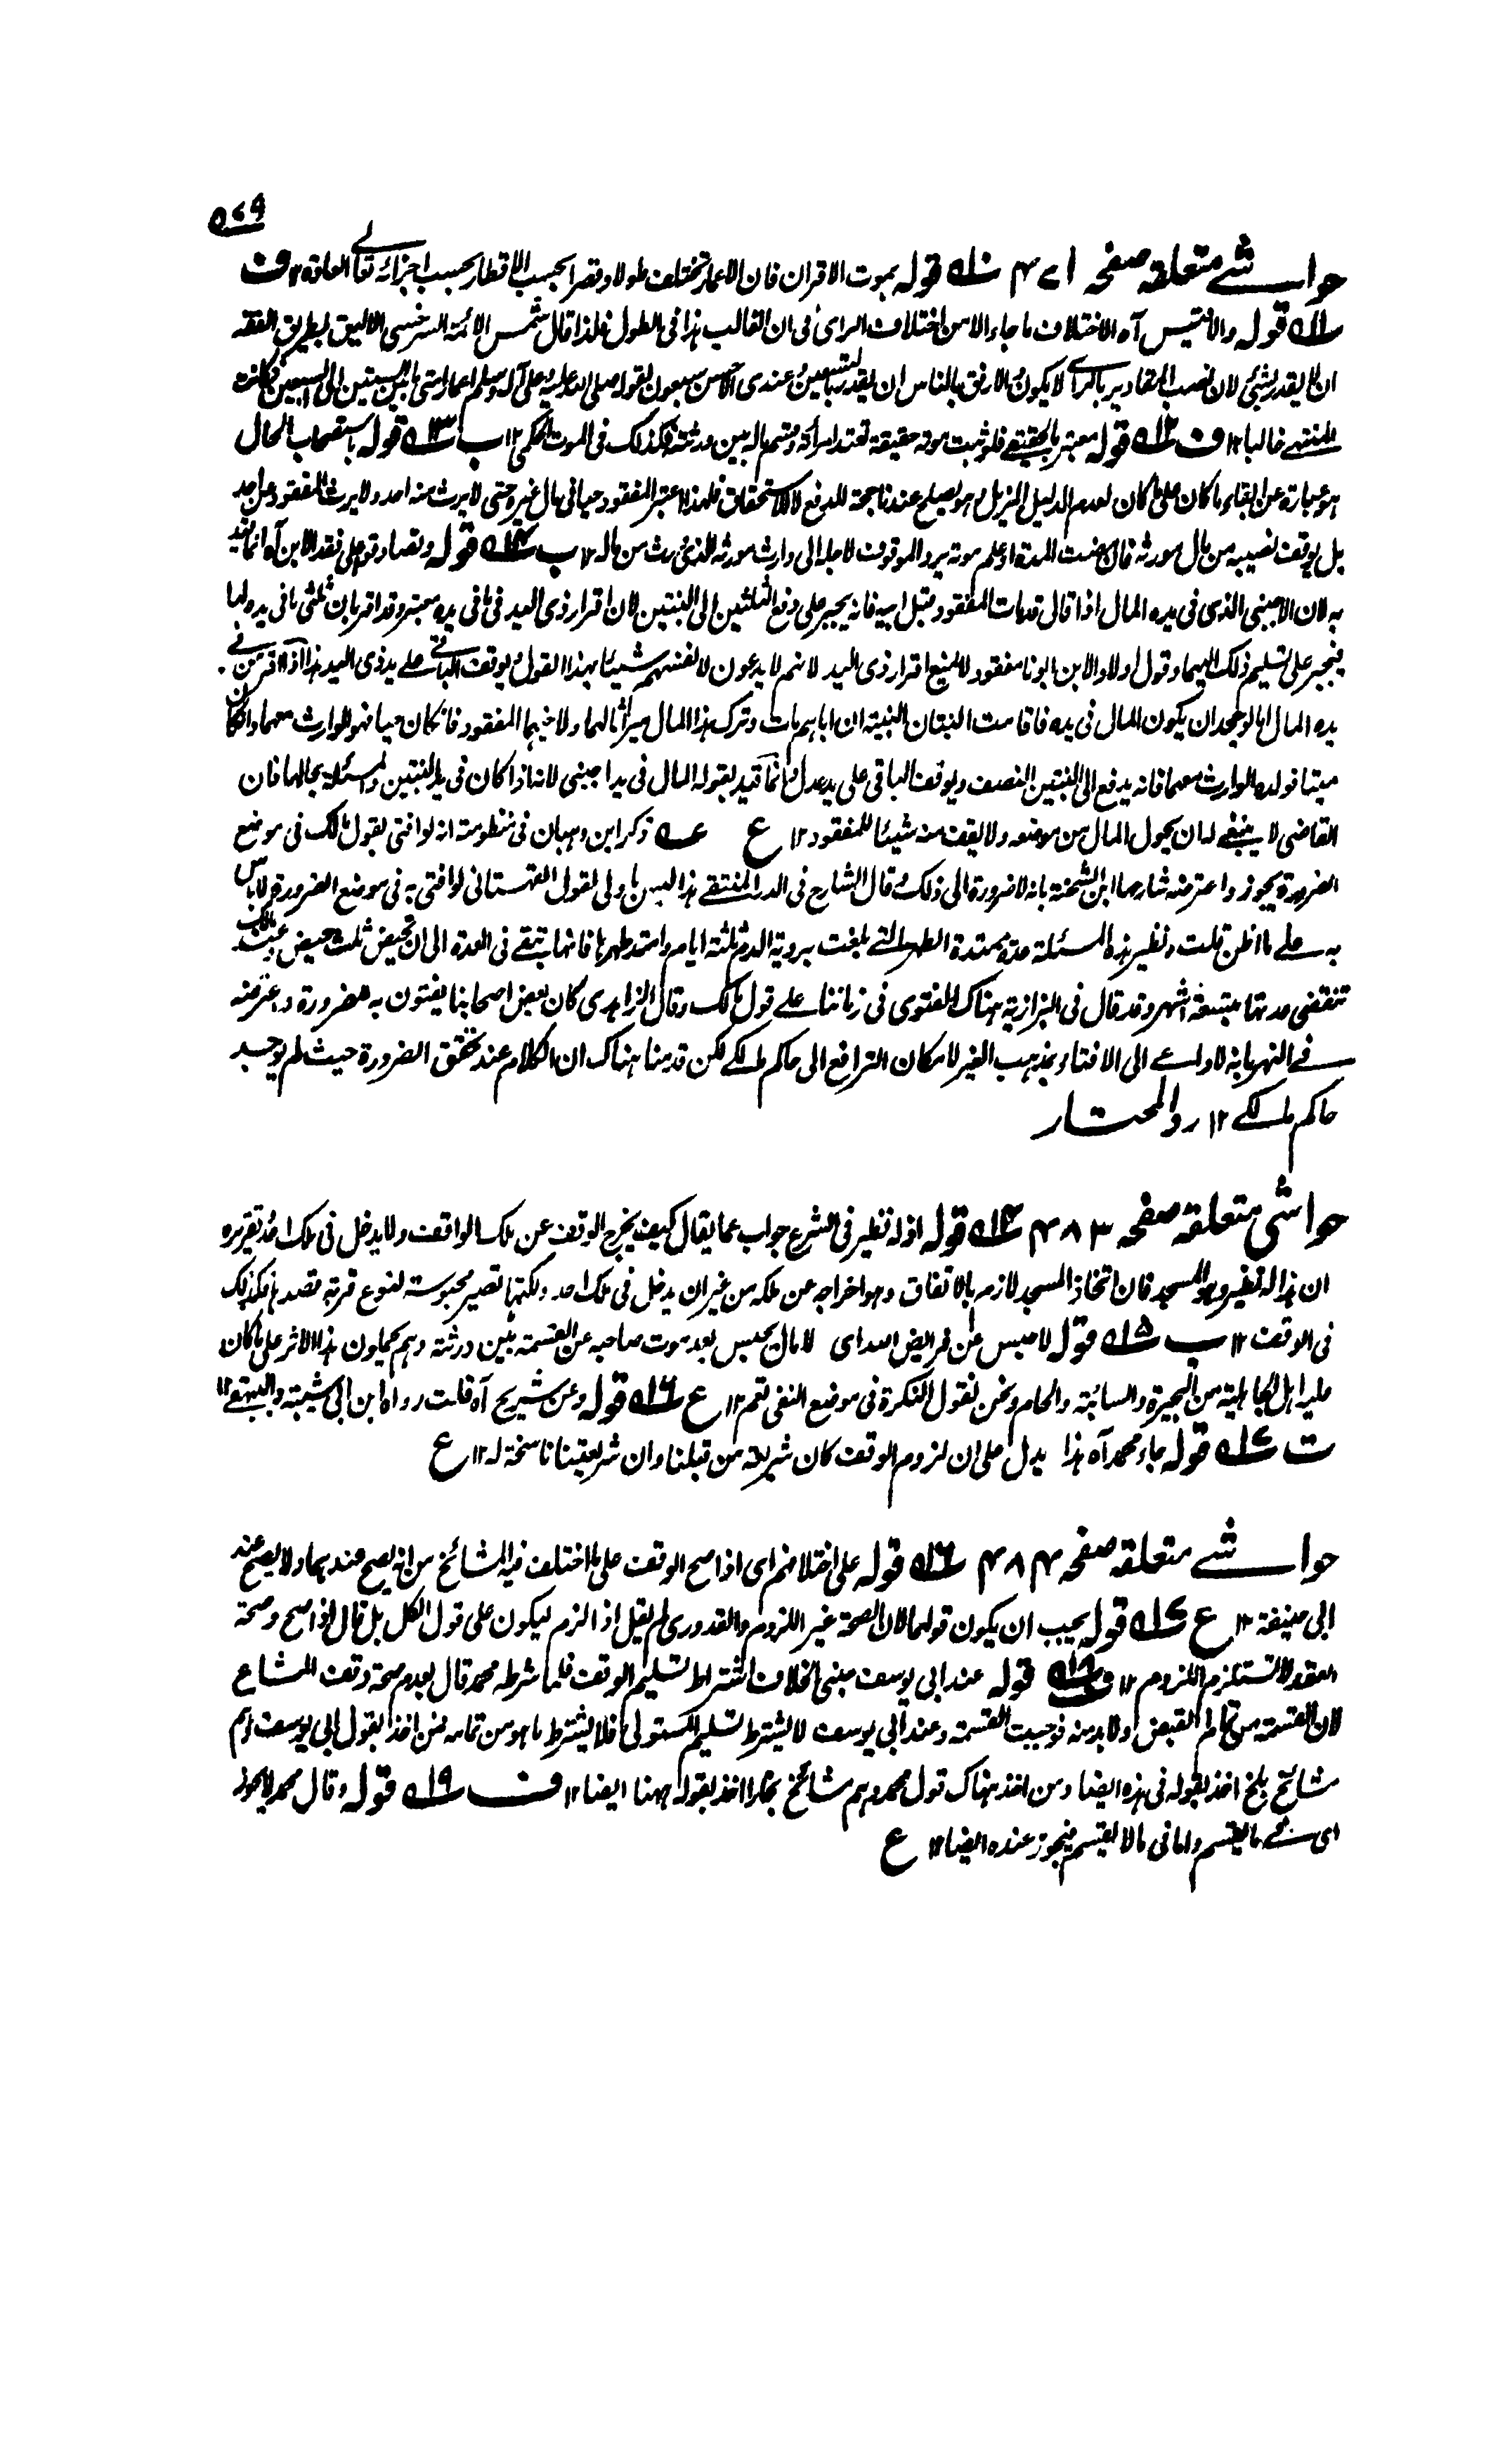 ۵۷۹
حواشے متعلقہ صفحہ ۴۷۱ ۱۰ قولہ بموت الاقران فان الاعمار تختلف طولا وقصرا بحسب الاقطار بحسب اجرائہ تعالے العادۃ ۱۲ ف
۱۱ قولہ والاقیس آہ الاختلاف ما جاء الا من اختلاف الرای فی ان الغالب ہذا فی الطول فلذا قال شمس الائمۃ السرخسی الالیق بطریق الفقہ
ان لا یقدر بشئی لان نصب المقادیر بالرای لا یکون والارفق بالناس ان یقدر بتسعین وعندی الاحسن سبعون لقولہ صلی اللہ علیہ وعلی آلہ وسلم اعمار امتی ما بین الستین الی السبعین فکانت
المنتہے غالبا ۱۲ ف ۱۲ قولہ معتبر بالحقیقے فلو ثبت موتہ حقیقۃ تعتد امرأتہ وقسم مالہ بین ورثتہ فکذلک فی الموت الحکمی ۱۲ ب ۱۳ قولہ باستصحاب الحال
ہو عبارۃ عن ابقاء ما کان علی ما کان لعدم الدلیل المزیل وہو یصلح عندنا حجۃ للدفع لا للاستحقاق فلہذا اعتبر المفقود حیا فی مال غیرہ حتی لا یرث منہ احد ولا یرث المفقود عن احد
بل یوقف نصیبہ من مال مورثہ فان مضت المدۃ او علم موتہ یرد الموقوف لاجلہ الی وارث مورثہ الذی یرث من مالہ ۱۲ ب ۱۴ قولہ وتصادقوا علی فقد الابن آہ انما قید
بہ لان الاجنبی الذی فی یدہ المال اذا قال قد مات المفقود قبل ابیہ فانہ یجبر علی دفع الثلثین الی البنتین لان اقرار ذی الید فی ما فی یدہ معتبر وقد اقر بان ثلثی ما فی یدہ لہما
فیجبر علی تسلیم ذلک الیہما وقول اولاد الابن ابونا مفقود لا یمنع اقرار ذی الید لانہم لا یدعون لانفسہم شیئا بہذا القول ویوقف الباقی علے ید ذی الید ہذا اذا اقر من فے
یدہ المال اما لو جحد ان یکون المال فی یدہ فاقامت البنتان البینۃ ان اباہم مات وترک ہذا المال میراثا لہما ولاخیہما المفقود فان کان حیا فہو الوارث معہما وان کان
میتا فولدہ الوارث معہما فانہ یدفع الی البنتین النصف ویوقف الباقی علی ید عدل وانما قید بقولہ المال فی ید اجنبی لانہ اذا کان فی ید البنتین والمسئلۃ بحالہا فان
القاضی لا ینبغے لہ ان یحول المال من موضعہ ولا یقف منہ شیئا للمفقود ۱۲ ع عہ ذکر ابن وہبان فی منظومتہ انہ لو افتی بقول مالک فی موضع
الضرورۃ یجوز واعترضہ شارحہا ابن الشحنۃ بانہ لا ضرورۃ الی ذلک وقال الشارح فی الدر المنتقے ہذا لیس باولی لقول القہستانی لو افتی بہ فی موضع الضرورۃ لا باس
بہ علے ما اظن قلت ونظیر ہذہ المسئلۃ عدۃ ممتدۃ الطہر التے بلغت برویۃ الدم ثلثۃ ایام وامتد طہرہا فانہا تبقے فی العدۃ الی ان تحیض ثلث حیض وعند مالک
تنقضی عدتہا بتسعۃ اشہر وقد قال فی البزازیۃ ہناک الفتوی فی زماننا علے قول مالک وقال الزاہدی کان بعض اصحابنا یفتون بہ للضرورۃ واعترضہ
فے النہر بانہ لا داعے الی الافتاء بمذہب الغیر لامکان الترافع الی حاکم مالکے لکن قدمنا ہناک ان الکلام عند تحقق الضرورۃ حیث لم یوجد
حاکم مالکے ۱۲ رد المحتار
حواشی متعلقہ صفحہ ۴۸۳ ۱۴ قولہ اذ لہ نظیر فی الشرع جواب عما یقال کیف یخرج الوقف عن ملک الواقف ولا یدخل فی ملک احد تقریرہ
ان ہذا لہ نظیر وہو المسجد فان اتخاذ المسجد لازم بالاتفاق وہو اخراجہ عن ملکہ من غیر ان یدخل فی ملک احد ولکنہا تصیر محبوسۃ لنوع قربۃ قصدہا فکذلک
فی الوقف ۱۲ ب ۱۵ قولہ لا حبس عن فرایض اللہ ای لا مال یحبس بعد موت صاحبہ عن القسمۃ بین ورثتہ وہم یحملون ہذا الاثر علی ما کان
علیہ اہل الجاہلیۃ من البحیرۃ والسائبۃ والحام ونحن نقول النکرۃ فی موضع النفی تعم ۱۲ ع ۱۶ قولہ وعن شریح آہ قلت رواہ ابن ابی شیبۃ والبیہقے ۱۲
ت ۱۷ قولہ جاء محمد آہ ہذا یدل علی ان لزوم الوقف کان شریعۃ من قبلنا وان شریعتنا ناسخۃ لہ ۱۲ ع
حواشے متعلقہ صفحہ ۴۸۴ ۱۶ قولہ علی اختلافہم ای اذا صح الوقف علی ما اختلف فیہ المشائخ من انہ یصح عندہما ولا یصح عند
ابی حنیفۃ ۱۲ ع ۱۷ قولہ یجب ان یکون قولہما لان الصحۃ غیر اللزوم والقدوری لم یقل اذا لزم لیکون علی قول الکل بل قال اذا صح وصحۃ
العقد لا تستلزم اللزوم ۱۲ ف ۱۸ قولہ عند ابی یوسف مبنی الخلاف اشتراط تسلیم الوقف فلما شرطہ محمد قال بعدم صحۃ وقف المشاع
لان القسمۃ من تمام القبض ولا بد منہ فوجبت القسمۃ وعند ابی یوسف لا یشترط تسلیم المتولی فلا یشترط ما ہو من تمامہ فمن اخذ بقول ابی یوسف وہم
مشائخ بلخ اخذ بقولہ فی ہذہ ایضا ومن اخذ ہناک قول محمد وہم مشائخ بخارا اخذ بقولہ ہہنا ایضا ۱۲ ف ۱۹ قولہ وقال محمد لا یجوز
ای فے ما یقسم واما فی ما لا یقسم فیجوز عندہ ایضا ۱۲ ع